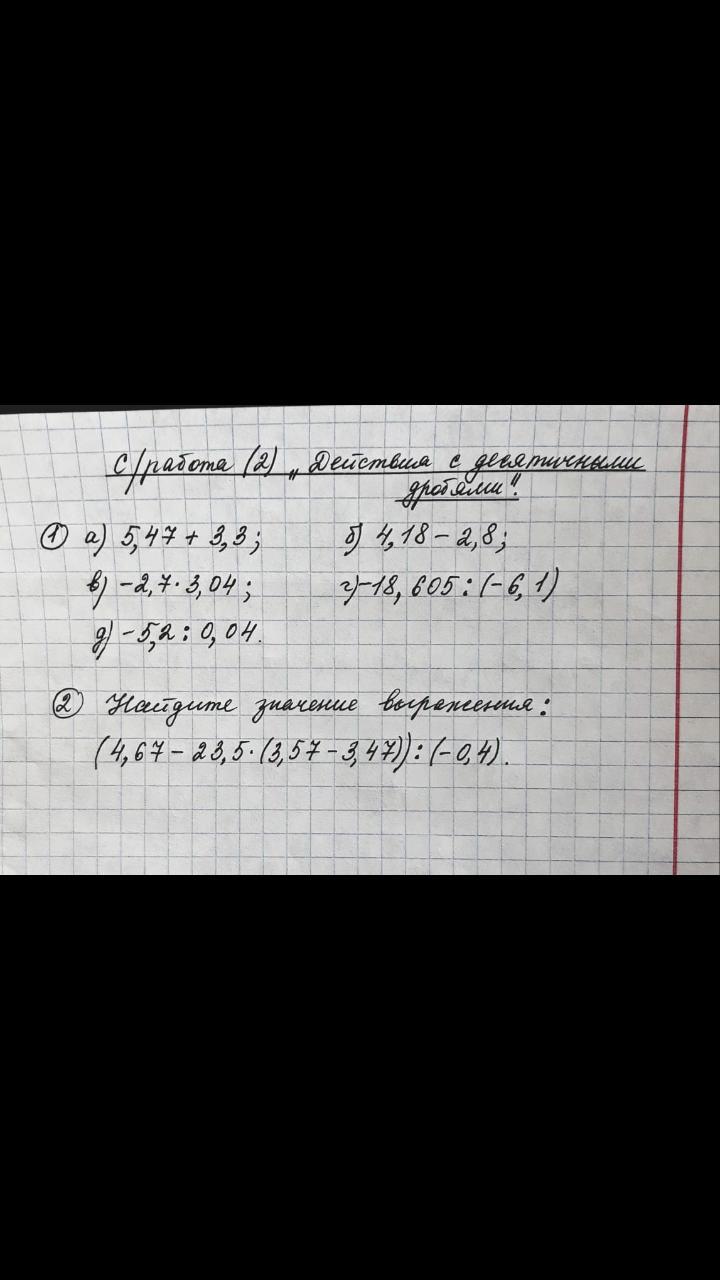 С/работа (2) „Действия с десятичными
дробями".
① а) 5,47 + 3,3; б) 4,18 - 2,8;
в) -2,7·3,04; г) -18,605 : (-6,1)
д) -5,2 : 0,04.
② Найдите значение выражения:
(4,67 - 23,5·(3,57 - 3,47)) : (-0,4).